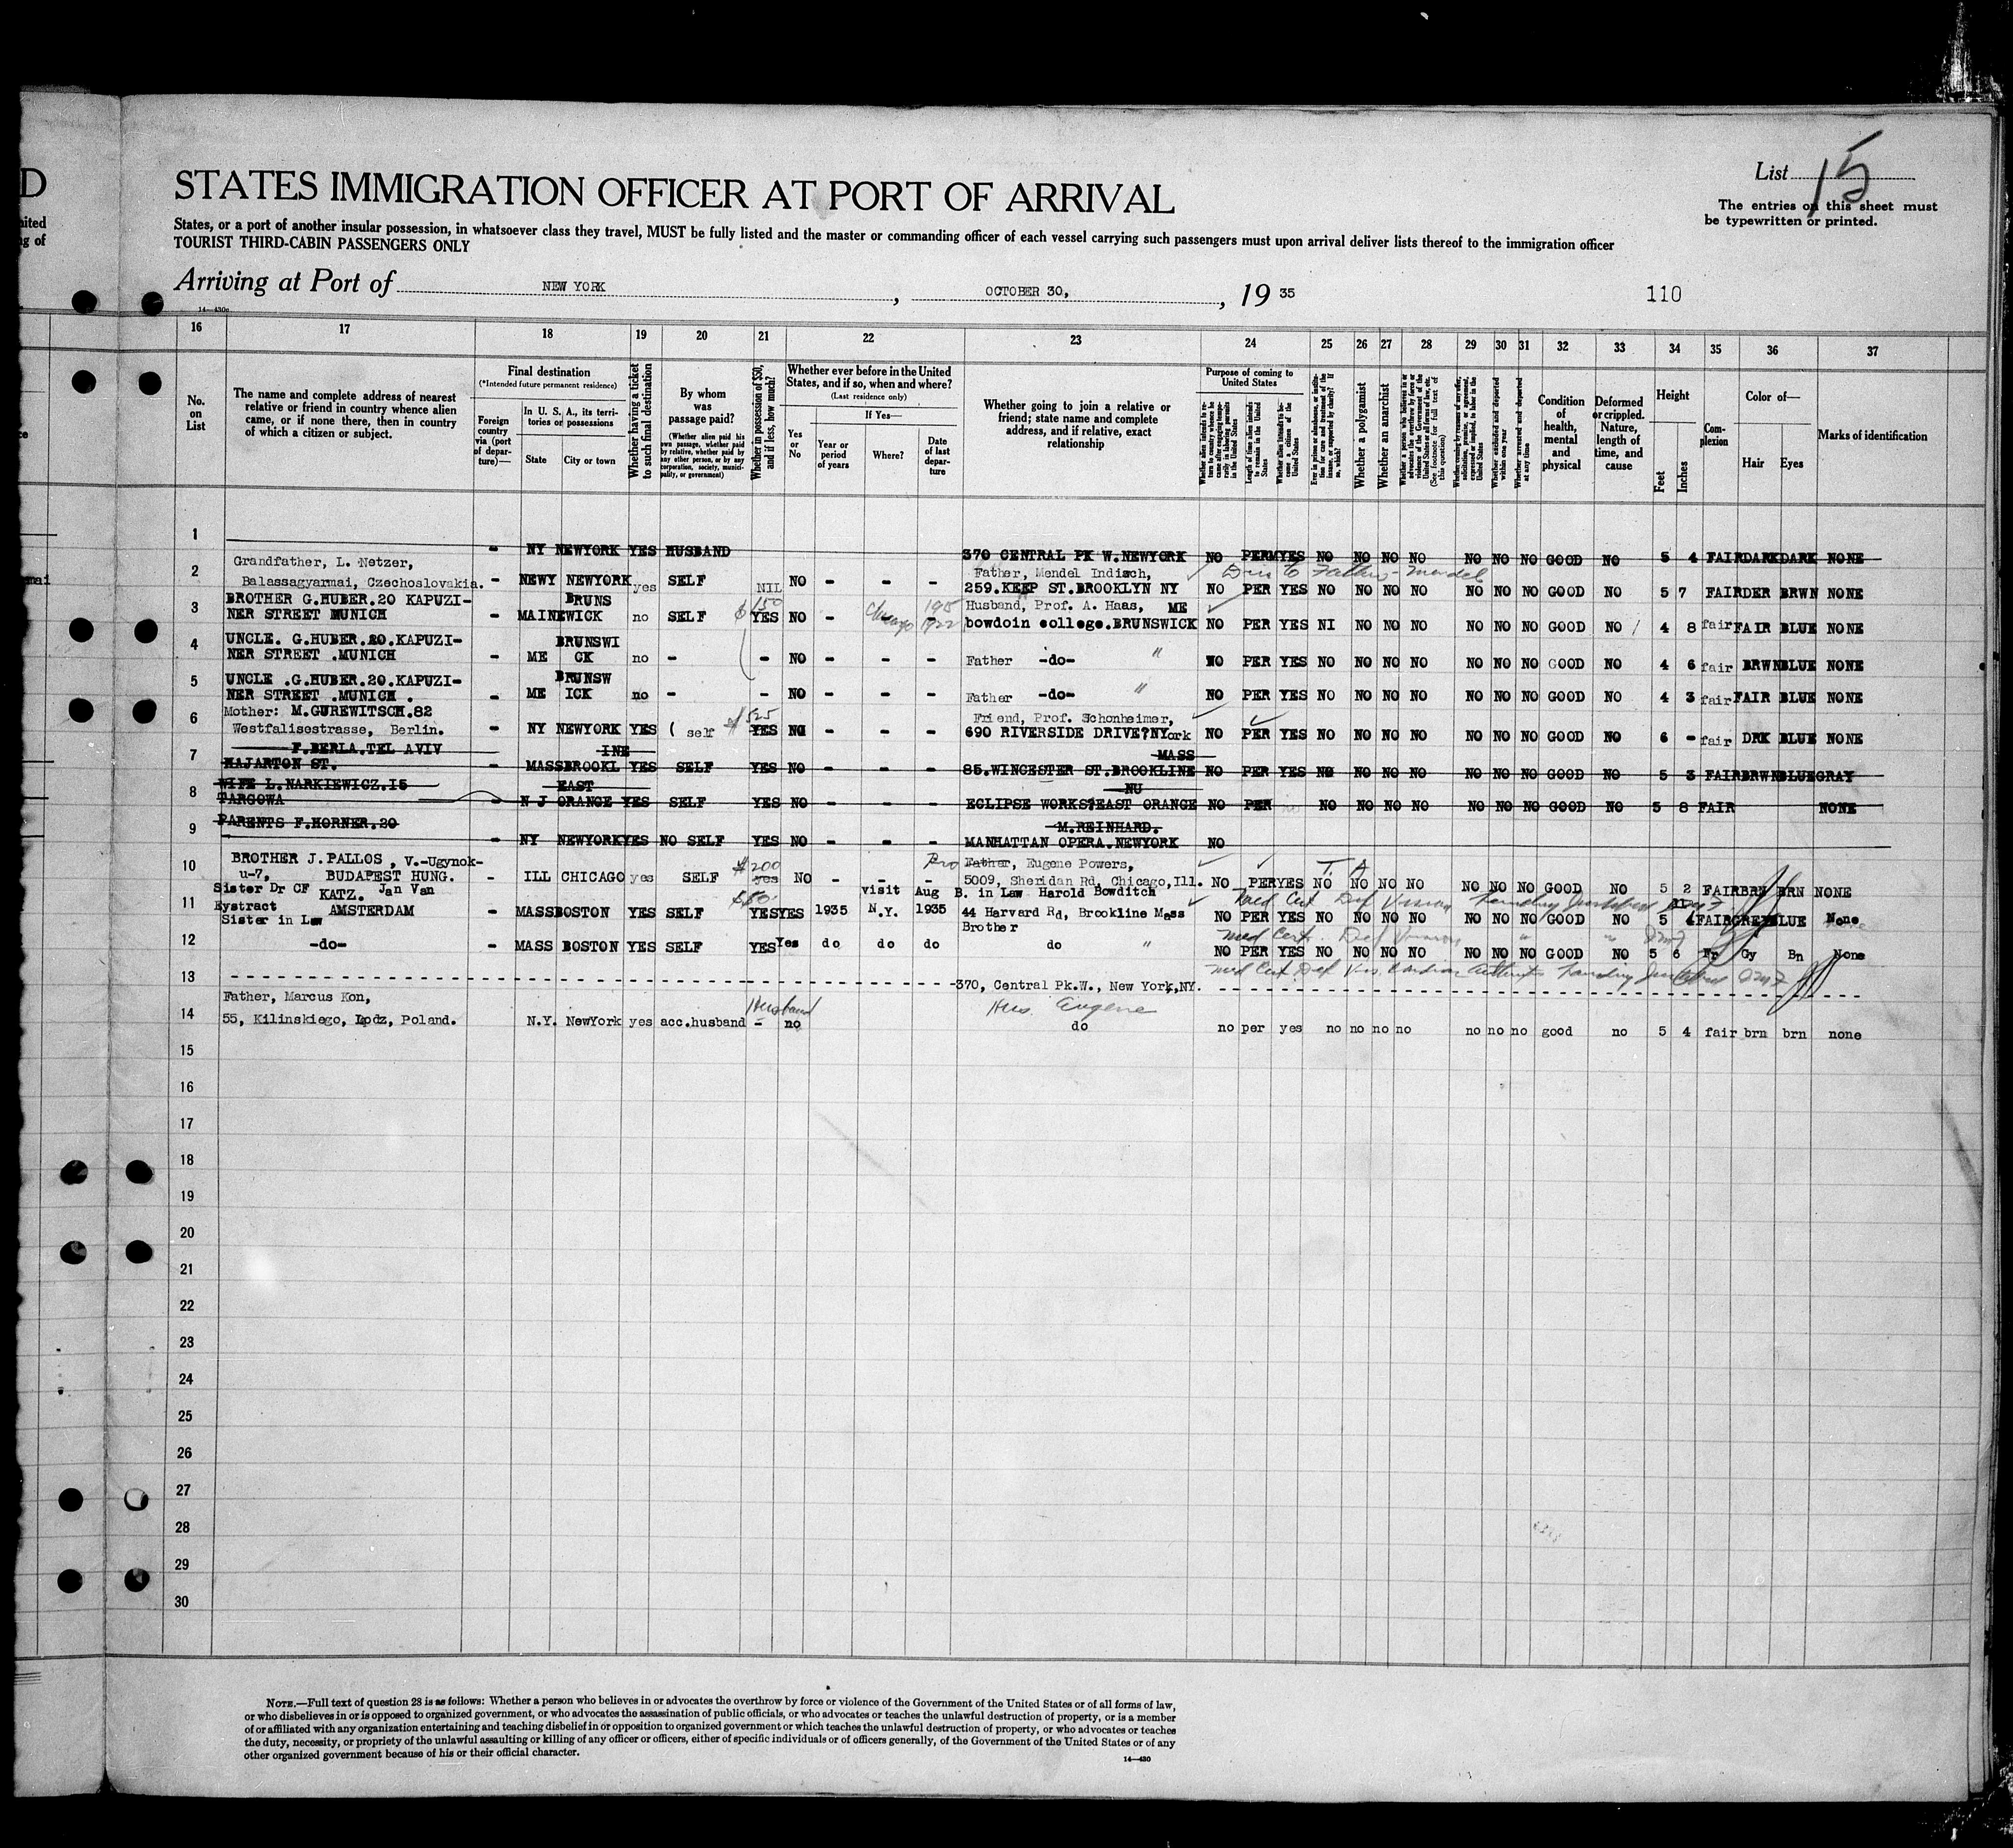 D
STATES IMMIGRATION OFFICER AT PORT OF ARRIVAL
List 15
The entries on this sheet must
be typewritten or printed.
States, or a port of another insular possession, in whatsoever class they travel, MUST be fully listed and the master or commanding officer of each vessel carrying such passengers must upon arrival deliver lists thereof to the immigration officer
TOURIST THIRD-CABIN PASSENGERS ONLY
Arriving at Port of NEW YORK, OCTOBER 30, 1935
110
14—430c
16 17 18 19 20 21 22 23 24 25 26 27 28 29 30 31 32 33 34 35 36 37
No. on List
The name and complete address of nearest relative or friend in country whence alien came, or if none there, then in country of which a citizen or subject.
Final destination
(*Intended future permanent residence)
Foreign country via (port of departure)—
In U. S. A., its territories or possessions
State
City or town
Whether having a ticket to such final destination
By whom was passage paid?
(Whether alien paid his own passage, whether paid by relative, whether paid by any other person, or by any corporation, society, municipality, or government)
Whether in possession of $50, and if less, how much?
Whether ever before in the United States, and if so, when and where?
(Last residence only)
If Yes—
Yes or No
Year or period of years
Where?
Date of last departure
Whether going to join a relative or friend; state name and complete address, and if relative, exact relationship
Purpose of coming to United States
Whether a polygamist
Whether an anarchist
Condition of health, mental and physical
Deformed or crippled. Nature, length of time, and cause
Height
Feet
Inches
Complexion
Color of—
Hair
Eyes
Marks of identification
1 - NY NEWYORK YES HUSBAND 370 CENTRAL PK W.NEWYORK NO PERM YES NO NO NO NO NO NO NO GOOD NO 5 4 FAIR DARK DARK NONE
Grandfather, L. Netzer, Father, Mendel Indisch,
2 Balassagyarmai, Czechoslovakia. - NEWY NEWYORK yes SELF NIL NO - - - 259.KEEP ST.BROOKLYN NY NO PER YES NO NO NO NO NO NO NO GOOD NO 5 7 FAIR DER BRWN NONE
BROTHER G.HUBER.20 KAPUZI- BRUNS $150 Husband, Prof. A. Haas, ME
3 NER STREET MUNICH - MAINE WICK no SELF YES NO - Chicago 1922 bowdoin college.BRUNSWICK NO PER YES NI NO NO NO NO NO NO GOOD NO 4 8 fair FAIR BLUE NONE
UNCLE. G.HUBER.20.KAPUZI- BRUNSWI
4 NER STREET .MUNICH - ME CK no - - NO - - - Father -do- " NO PER YES NO NO NO NO NO NO NO GOOD NO 4 6 fair BRWN BLUE NONE
UNCLE .G.HUBER.20.KAPUZI- BRUNSW
5 NER STREET .MUNICH . - ME ICK no - - NO - - - Father -do- " NO PER YES NO NO NO NO NO NO NO GOOD NO 4 3 fair FAIR BLUE NONE
Mother: M.GUREWITSCH.82 $525 Friend, Prof. Schonheimer,
6 Westfalisestrasse, Berlin. - NY NEWYORK YES ( self YES NO - - - 690 RIVERSIDE DRIVE?NYork NO PER YES NO NO NO NO NO NO NO GOOD NO 6 - fair DRK BLUE NONE
F.BERLA.TEL AVIV INE MASS
7 HAJARTON ST. - MASS BROOKL YES SELF YES NO - - - 85.WINCESTER ST.BROOKLINE NO PER YES NO NO NO NO NO NO NO GOOD NO 5 3 FAIR BRWN BLUE GRAY
WIFE L.NARKIEWICZ.15 EAST NU
8 TARGOWA - N J ORANGE YES SELF YES NO - - - ECLIPSE WORKS?EAST ORANGE NO PER NO NO NO NO NO NO NO GOOD NO 5 8 FAIR NONE
PARENTS F.HORNER.20 M.REINHARD.
9 - NY NEWYORK YES NO SELF YES NO - - - MANHATTAN OPERA.NEWYORK NO
10 BROTHER J.PALLOS , V.-Ugynok- $200 Father, Eugene Powers, T. A
u-7, BUDAPEST HUNG. - ILL CHICAGO yes SELF yes NO - - - 5009, Sheridan Rd, Chicago,Ill. NO PER YES NO NO NO NO NO NO NO GOOD NO 5 2 FAIR BRN BRN NONE
Sister Dr CF KATZ. Jan Van $50 visit Aug B. in Law Harold Bowditch Med Cert Def Vision
11 Eystract AMSTERDAM - MASS BOSTON YES SELF YES YES 1935 N.Y. 1935 44 Harvard Rd, Brookline Mass NO PER YES NO NO NO NO NO NO NO GOOD NO 5 FAIR GREY BLUE None
Sister in Law Brother med Cert Def Vision
12 -do- - MASS BOSTON YES SELF YES Yes do do do do " NO PER YES NO NO NO NO NO NO NO GOOD NO 5 6 Fr Gy Bn None
med Cert Def
13 370, Central Pk.W., New York,NY.
Father, Marcus Kon, Husband Hus. Eugene
14 55, Kilinskiego, Lodz, Poland. N.Y. NewYork yes acc.husband - no do no per yes no no no no no no no good no 5 4 fair brn brn none
15
16
17
18
19
20
21
22
23
24
25
26
27
28
29
30
NOTE.—Full text of question 28 is as follows: Whether a person who believes in or advocates the overthrow by force or violence of the Government of the United States or of all forms of law,
or who disbelieves in or is opposed to organized government, or who advocates the assassination of public officials, or who advocates or teaches the unlawful destruction of property, or is a member
of or affiliated with any organization entertaining and teaching disbelief in or opposition to organized government or which teaches the unlawful destruction of property, or who advocates or teaches
the duty, necessity, or propriety of the unlawful assaulting or killing of any officer or officers, either of specific individuals or of officers generally, of the Government of the United States or of any
other organized government because of his or their official character.
14—430